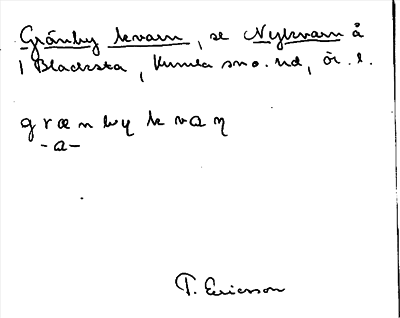 Gränby kvarn, se Nykvarn å
1 Blacksta, Kumla sn o. hd, ör. l.
grænby kvaɳ
-a-
T. Ericsson